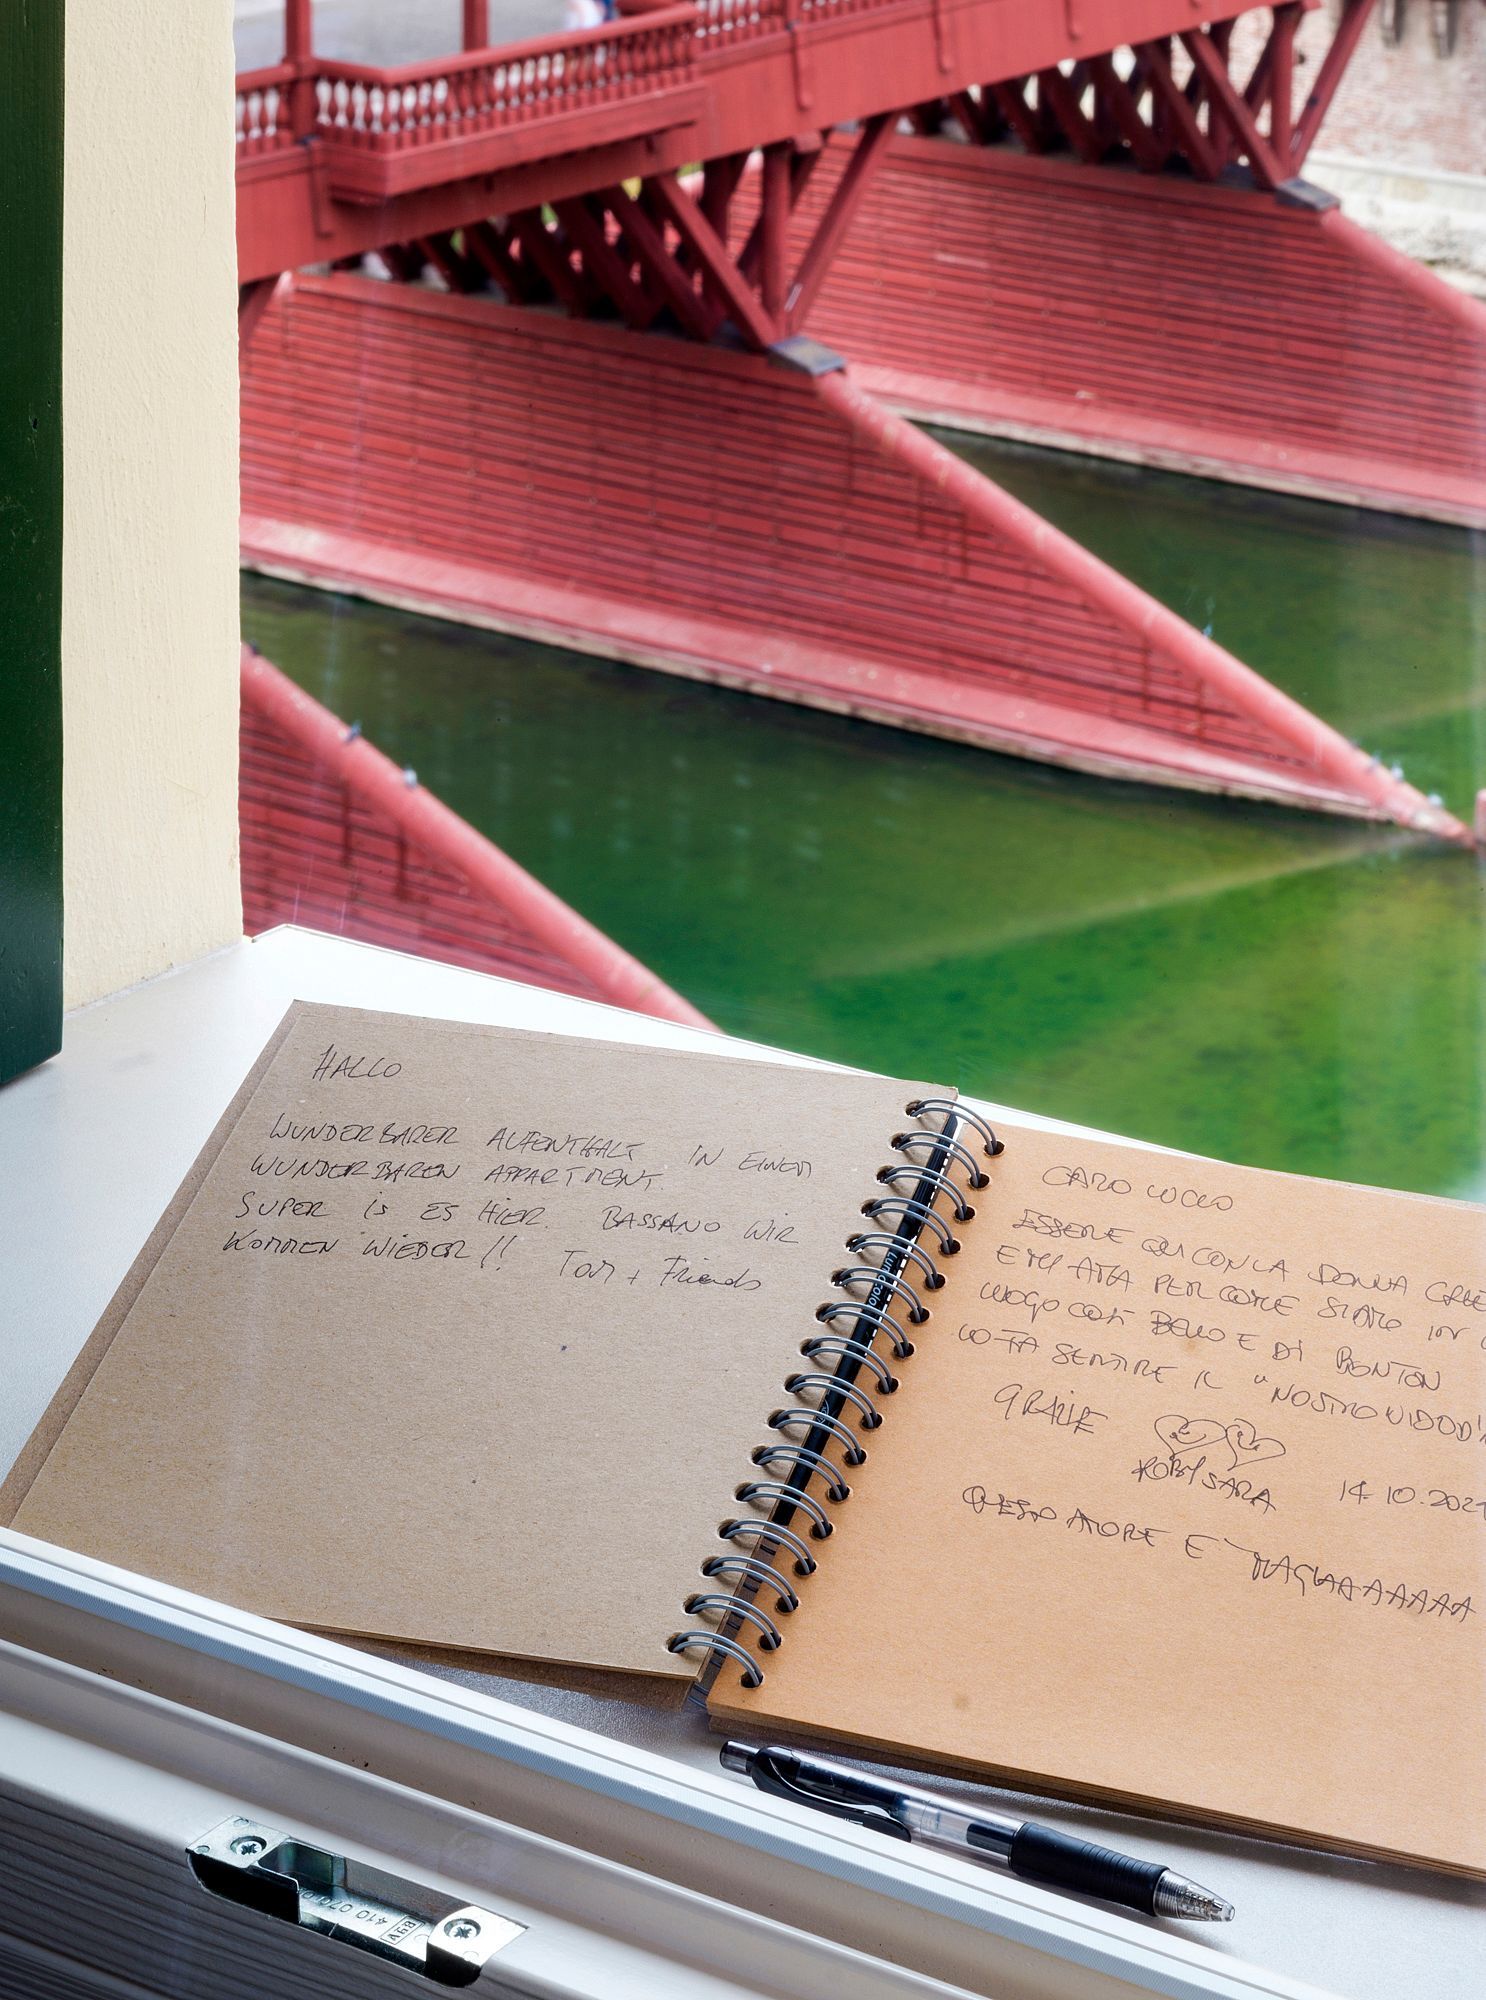 HALLO
WUNDERBARER AUFENTHALT IN EINEM
WUNDERBAREN APPARTMENT.
SUPER IS ES HIER. BASSANO WIR
KOMMEN WIEDER!! Tom + Friends
CARO
ESSERE QUI CON LA DONNA CHE
E MI AMA PER COME SIAMO IN
LUOGO COSÌ BELLO E DI
LO FA SENTIRE IL "NOSTRO NIDO D'A
GRAZIE
ROBY SARA 14.10.202
QUESTO AMORE E'
410 070
AGB